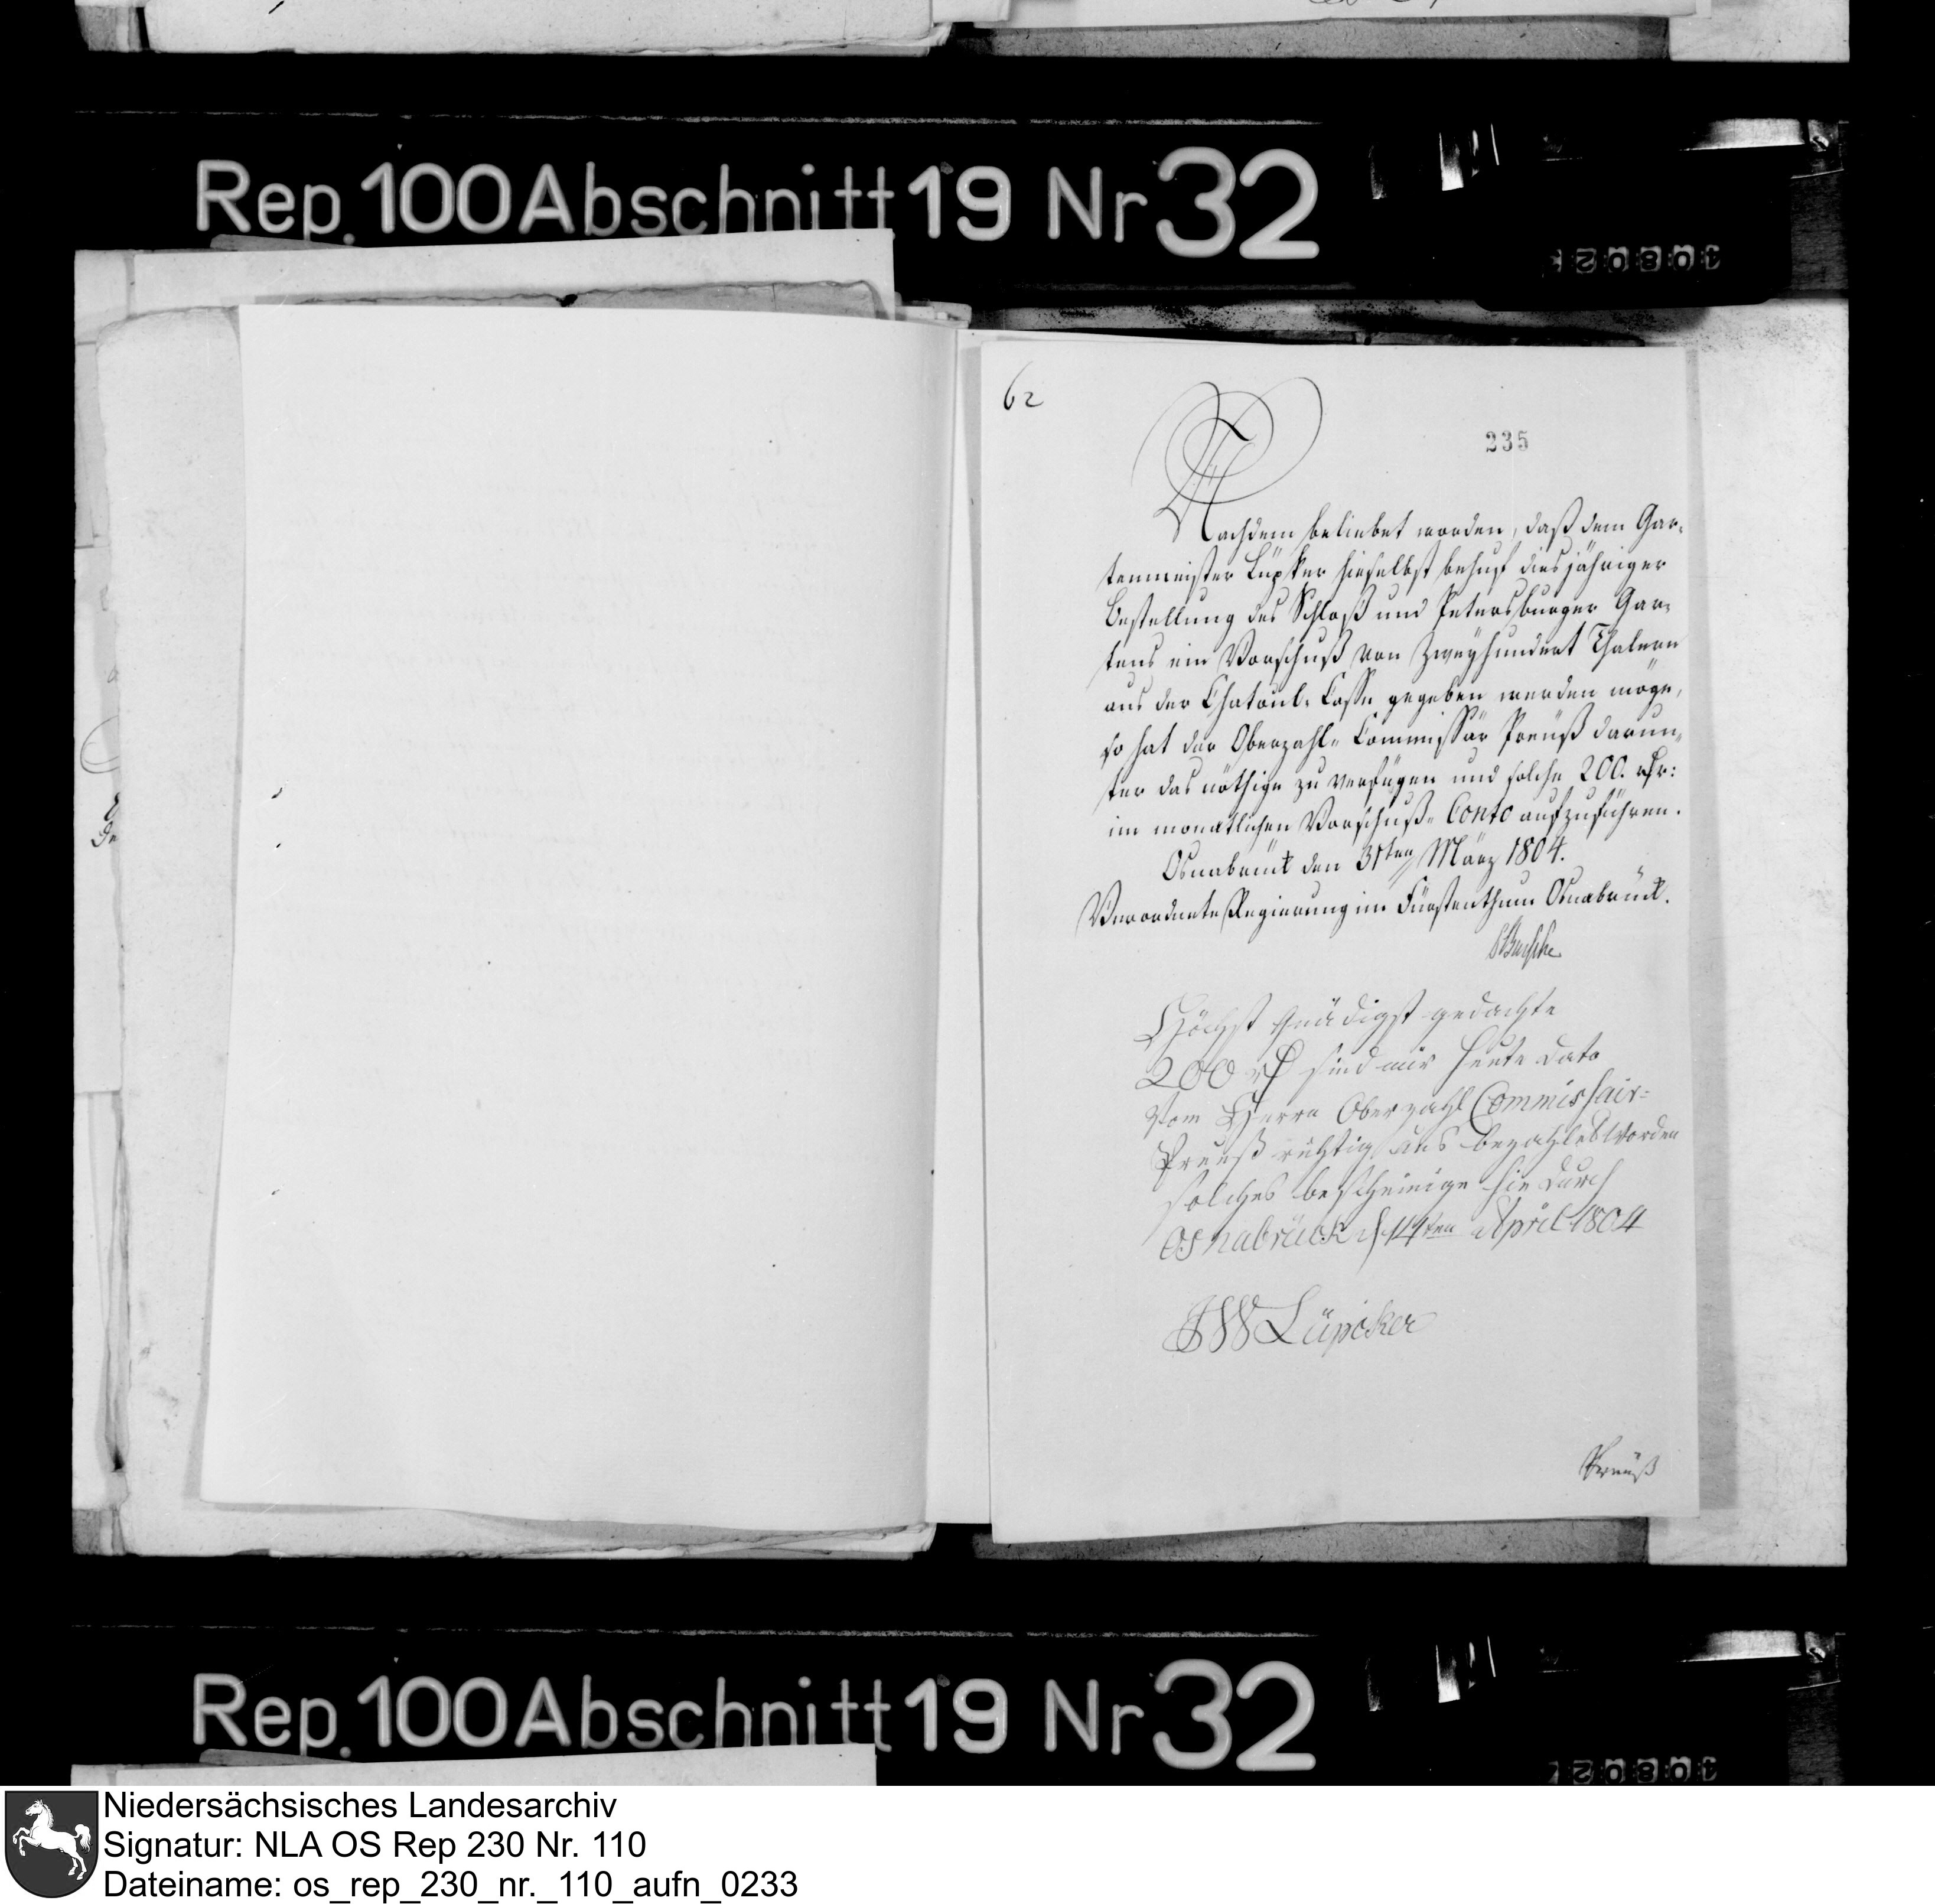 Rep. 100 Abschnitt 19 Nr 32
62
235
Nachdem beliebet worden, daß dem Gar-
tenmeister Lüpker hieselbst behuf diesjähriger
Bestellung des Schloß und Petersburger Gar-
tens ein Vorschuß von Zweyhundert Thalern
aus der Chatoul-Casse gegeben werden möge,
so hat der Oberzahl-Commissär Preuß darun-
ter das nöthige zu verfügen und solche 200. rthr:
im monatlichen Vorschuß-Conto aufzuführen.
Osnabrück den 31ten März 1804.
Verordnete Regierung im Fürstenthum Osnabrück.
Busche
Höchst Gnädigst gedachte
200 rth sind mir heute dato
Vom Herrn Oberzahl Commissair-
Preuß richtig aus bezahlet worden
solches bescheinige hie durch
Osnabrück d 14ten April 1804
JW Lüpcker
Preuß
Rep. 100 Abschnitt 19 Nr 32
Niedersächsisches Landesarchiv
Signatur: NLA OS Rep 230 Nr. 110
Dateiname: os_rep_230_nr._110_aufn_0233